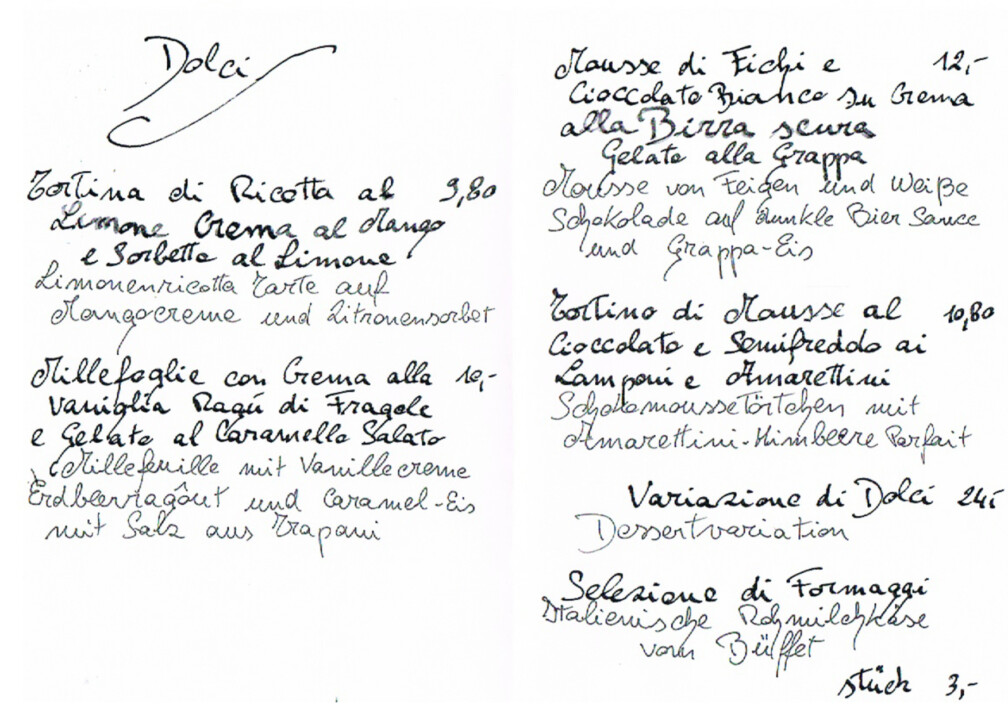 Dolci
Tortina di Ricotta al 9,80
Limone Crema al Mango
e Sorbetto al Limone
Limonenricotta Tarte auf
Mangocreme und Zitronensorbet
Millefoglie con Crema alla 10,-
Vaniglia Ragú di Fragole
e Gelato al Caramello Salato
Millefeuille mit Vanillecreme
Erdbeerragôut und Caramel-Eis
mit Salz aus Trapani
Mousse di Fichi e 12,-
Cioccolato Bianco su Crema
alla Birra scura
Gelato alla Grappa
Mousse von Feigen und Weiße
Schokolade auf dunkle Bier Sauce
und Grappa-Eis
Tortino di Mousse al 10,80
Cioccolato e Semifreddo ai
Lamponi e Amarettini
Schokomoussetörtchen mit
Amarettini-Himbeere Parfait
Variazione di Dolci 24,-
Dessertvariation
Selezione di Formaggi
Italienische Rohmilchkäse
vom Büffet
Stück 3,-